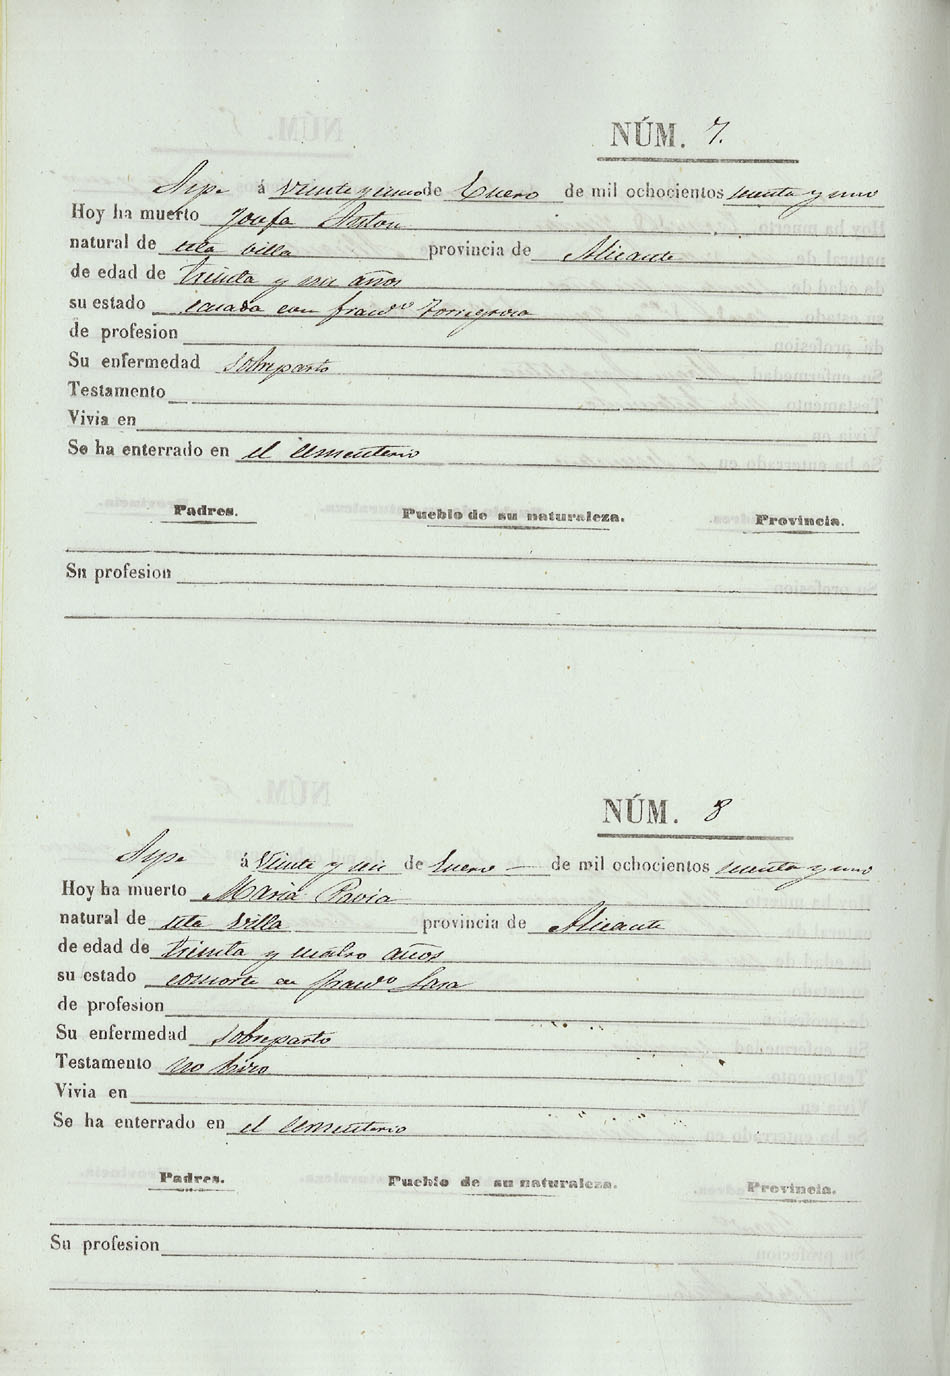 NÚM. 7.
Aspe á Veinte y uno de Enero de mil ochocientos sesenta y uno
Hoy ha muerto Josefa Anton
natural de esta villa provincia de Alicante
de edad de treinta y seis años
su estado casada con fran.co Torregrosa
de profesion
Su enfermedad sobreparto
Testamento
Vivia en
Se ha enterrado en el cementerio
Padres. Pueblo de su naturaleza. Provincia.
Su profesion
NÚM. 8
Aspe á Veinte y seis de Enero de mil ochocientos sesenta y uno
Hoy ha muerto Maria Pavia
natural de esta villa provincia de Alicante
de edad de treinta y cuatro años
su estado consorte en fran.co
de profesion
Su enfermedad sobreparto
Testamento no hizo
Vivia en
Se ha enterrado en el cementerio
Padres. Pueblo de su naturaleza. Provincia.
Su profesion